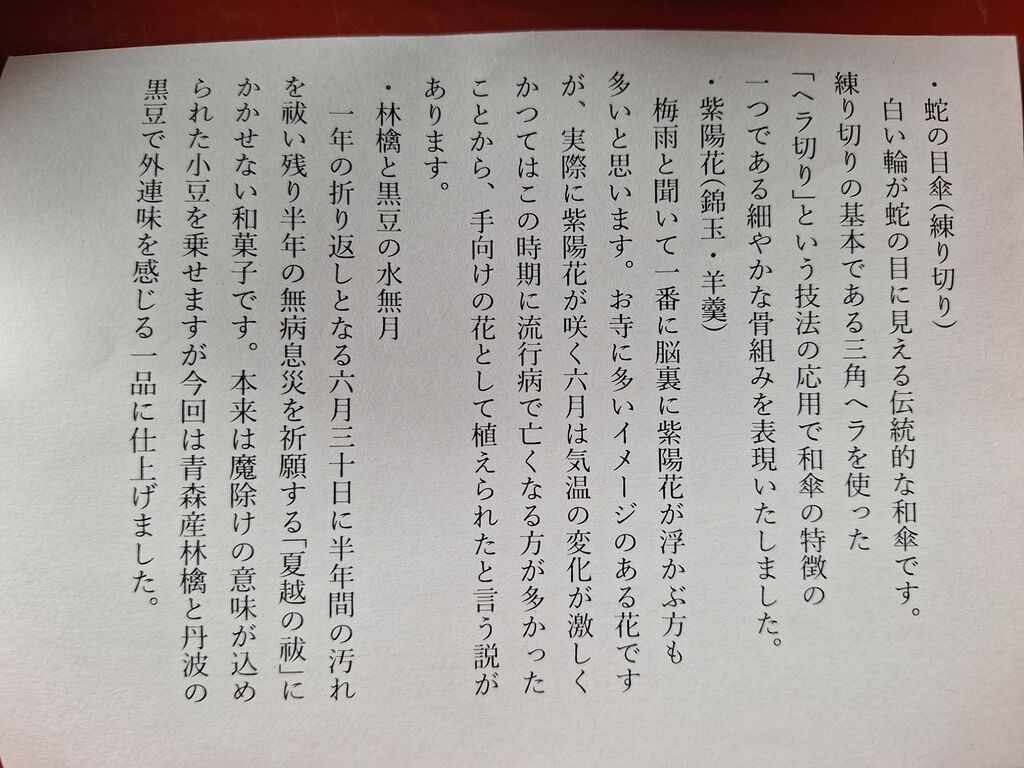 ・蛇の目傘(練り切り)
白い輪が蛇の目に見える伝統的な和傘です。
練り切りの基本である三角ヘラを使った
「ヘラ切り」という技法の応用で和傘の特徴の
一つである細やかな骨組みを表現いたしました。
・紫陽花(錦玉・羊羹)
梅雨と聞いて一番に脳裏に紫陽花が浮かぶ方も
多いと思います。お寺に多いイメージのある花です
が、実際に紫陽花が咲く六月は気温の変化が激しく
かつてはこの時期に流行病で亡くなる方が多かった
ことから、手向けの花として植えられたと言う説が
あります。
・林檎と黒豆の水無月
一年の折り返しとなる六月三十日に半年間の汚れ
を祓い残り半年の無病息災を祈願する「夏越の祓」に
かかせない和菓子です。本来は魔除けの意味が込め
られた小豆を乗せますが今回は青森産林檎と丹波の
黒豆で外連味を感じる一品に仕上げました。